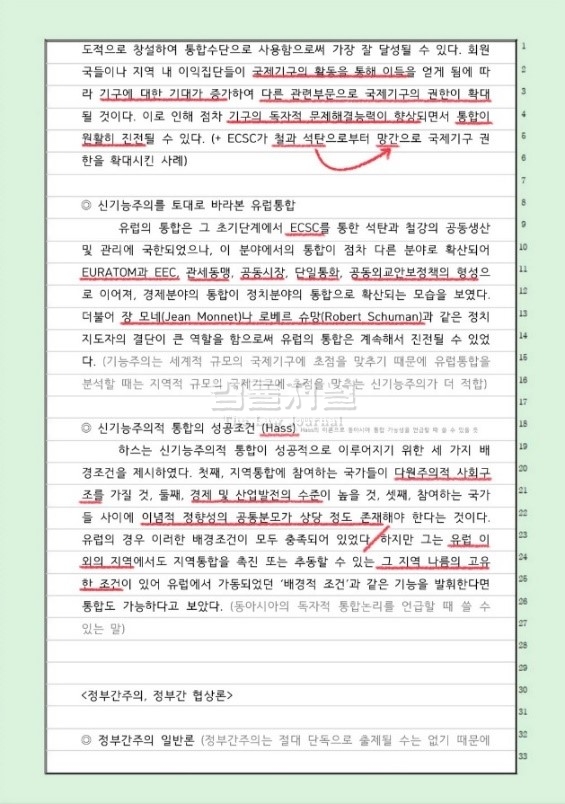 도적으로 창설하여 통합수단으로 사용함으로써 가장 잘 달성될 수 있다. 회원 1
국들이나 지역 내 이익집단들이 국제기구의 활동을 통해 이득을 얻게 됨에 따 2
라 기구에 대한 기대가 증가하여 다른 관련부문으로 국제기구의 권한이 확대 3
될 것이다. 이로 인해 점차 기구의 독자적 문제해결능력이 향상되면서 통합이 4
원활히 진전될 수 있다. (+ ECSC가 철과 석탄으로부터 망간으로 국제기구 권 5
한을 확대시킨 사례) 6
7
◎ 신기능주의를 토대로 바라본 유럽통합 8
유럽의 통합은 그 초기단계에서 ECSC를 통한 석탄과 철강의 공동생산 9
및 관리에 국한되었으나, 이 분야에서의 통합이 점차 다른 분야로 확산되어 10
EURATOM과 EEC, 관세동맹, 공동시장, 단일통화, 공동외교안보정책의 형성으 11
로 이어져, 경제분야의 통합이 정치분야의 통합으로 확산되는 모습을 보였다. 12
더불어 장 모네(Jean Monnet)나 로베르 슈망(Robert Schuman)과 같은 정치 13
지도자의 결단이 큰 역할을 함으로써 유럽의 통합은 계속해서 진전될 수 있었 14
다. (기능주의는 세계적 규모의 국제기구에 초점을 맞추기 때문에 유럽통합을 15
분석할 때는 지역적 규모의 국제기구에 초점을 맞추는 신기능주의가 더 적합) 16
법률저널 17
The Law Journal
◎ 신기능주의적 통합의 성공조건 (Hass) Hass의 이론으로 동아시아 통합 가능성을 언급할 때 쓸 수 있을 것 18
하스는 신기능주의적 통합이 성공적으로 이루어지기 위한 세 가지 배 19
경조건을 제시하였다. 첫째, 지역통합에 참여하는 국가들이 다원주의적 사회구 20
조를 가질 것, 둘째, 경제 및 산업발전의 수준이 높을 것, 셋째, 참여하는 국가 21
들 사이에 이념적 정향성의 공통분모가 상당 정도 존재해야 한다는 것이다. 22
유럽의 경우 이러한 배경조건이 모두 충족되어 있었다. 하지만 그는 유럽 이 23
외의 지역에서도 지역통합을 촉진 또는 추동할 수 있는 그 지역 나름의 고유 24
한 조건이 있어 유럽에서 가동되었던 '배경적 조건'과 같은 기능을 발휘한다면 25
통합도 가능하다고 보았다. (동아시아의 독자적 통합논리를 언급할 때 쓸 수 26
있는 말) 27
28
29
<정부간주의, 정부간 협상론> 30
31
◎ 정부간주의 일반론 (정부간주의는 절대 단독으로 출제될 수는 없기 때문에 32
33